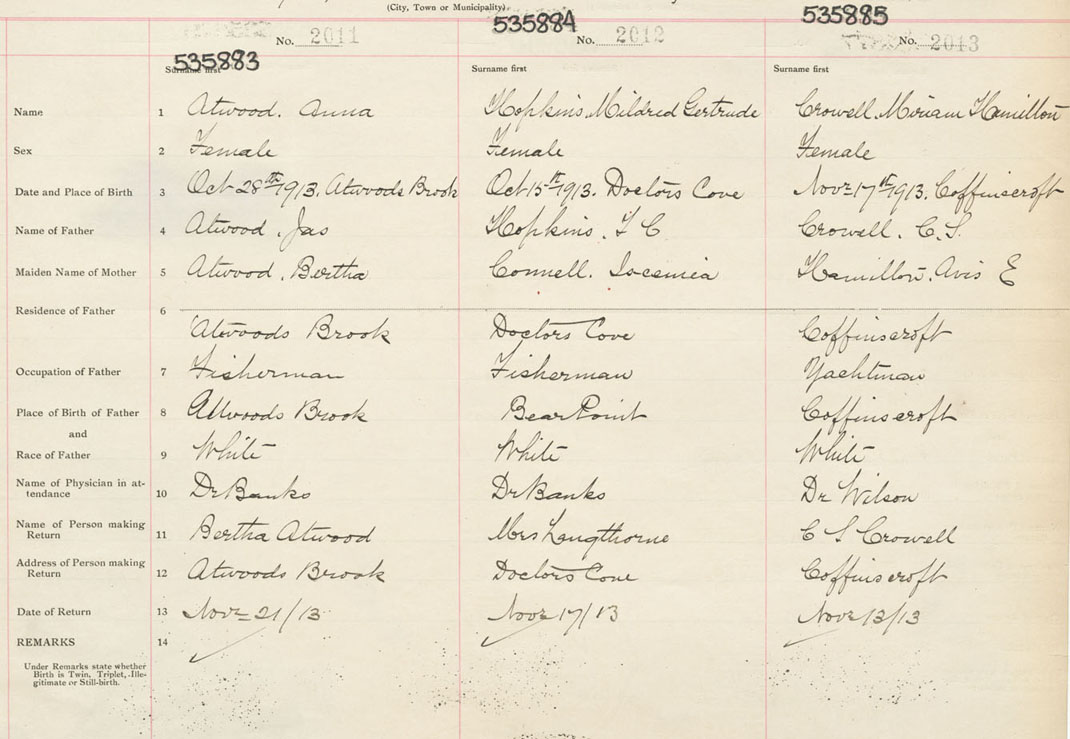 (City, Town or Municipality)
535883 535884 535885
No. 2011 No. 2012 No. 2013
Surname first Surname first Surname first
Name 1 Atwood. Anna Hopkins, Mildred Gertrude Crowell. Miriam Hamilton
Sex 2 Female Female Female
Date and Place of Birth 3 Oct 28th 1913. Atwoods Brook Oct 15th 1913. Doctors Cove Novr 17th 1913. Coffinscroft
Name of Father 4 Atwood, Jas Hopkins. C Crowell. C. S.
Maiden Name of Mother 5 Atwood, Bertha Connell. Hamilton, Avis E
Residence of Father 6
Atwoods Brook Doctors Cove Coffinscroft
Occupation of Father 7 Fisherman Fisherman Yachtman
Place of Birth of Father 8 Attwoods Brook Bear Point Coffinscroft
and
Race of Father 9 White White White
Name of Physician in at-
tendance 10 Dr Banks Dr Banks Dr Wilson
Name of Person making
Return 11 Bertha Atwood Mrs C S Crowell
Address of Person making
Return 12 Atwoods Brook Doctors Cove Coffinscroft
Date of Return 13 Novr 21/13 Novr 17/13 Novr 13/13
REMARKS 14
Under Remarks state whether
Birth is Twin, Triplet, Ille-
gitimate or Still-birth.